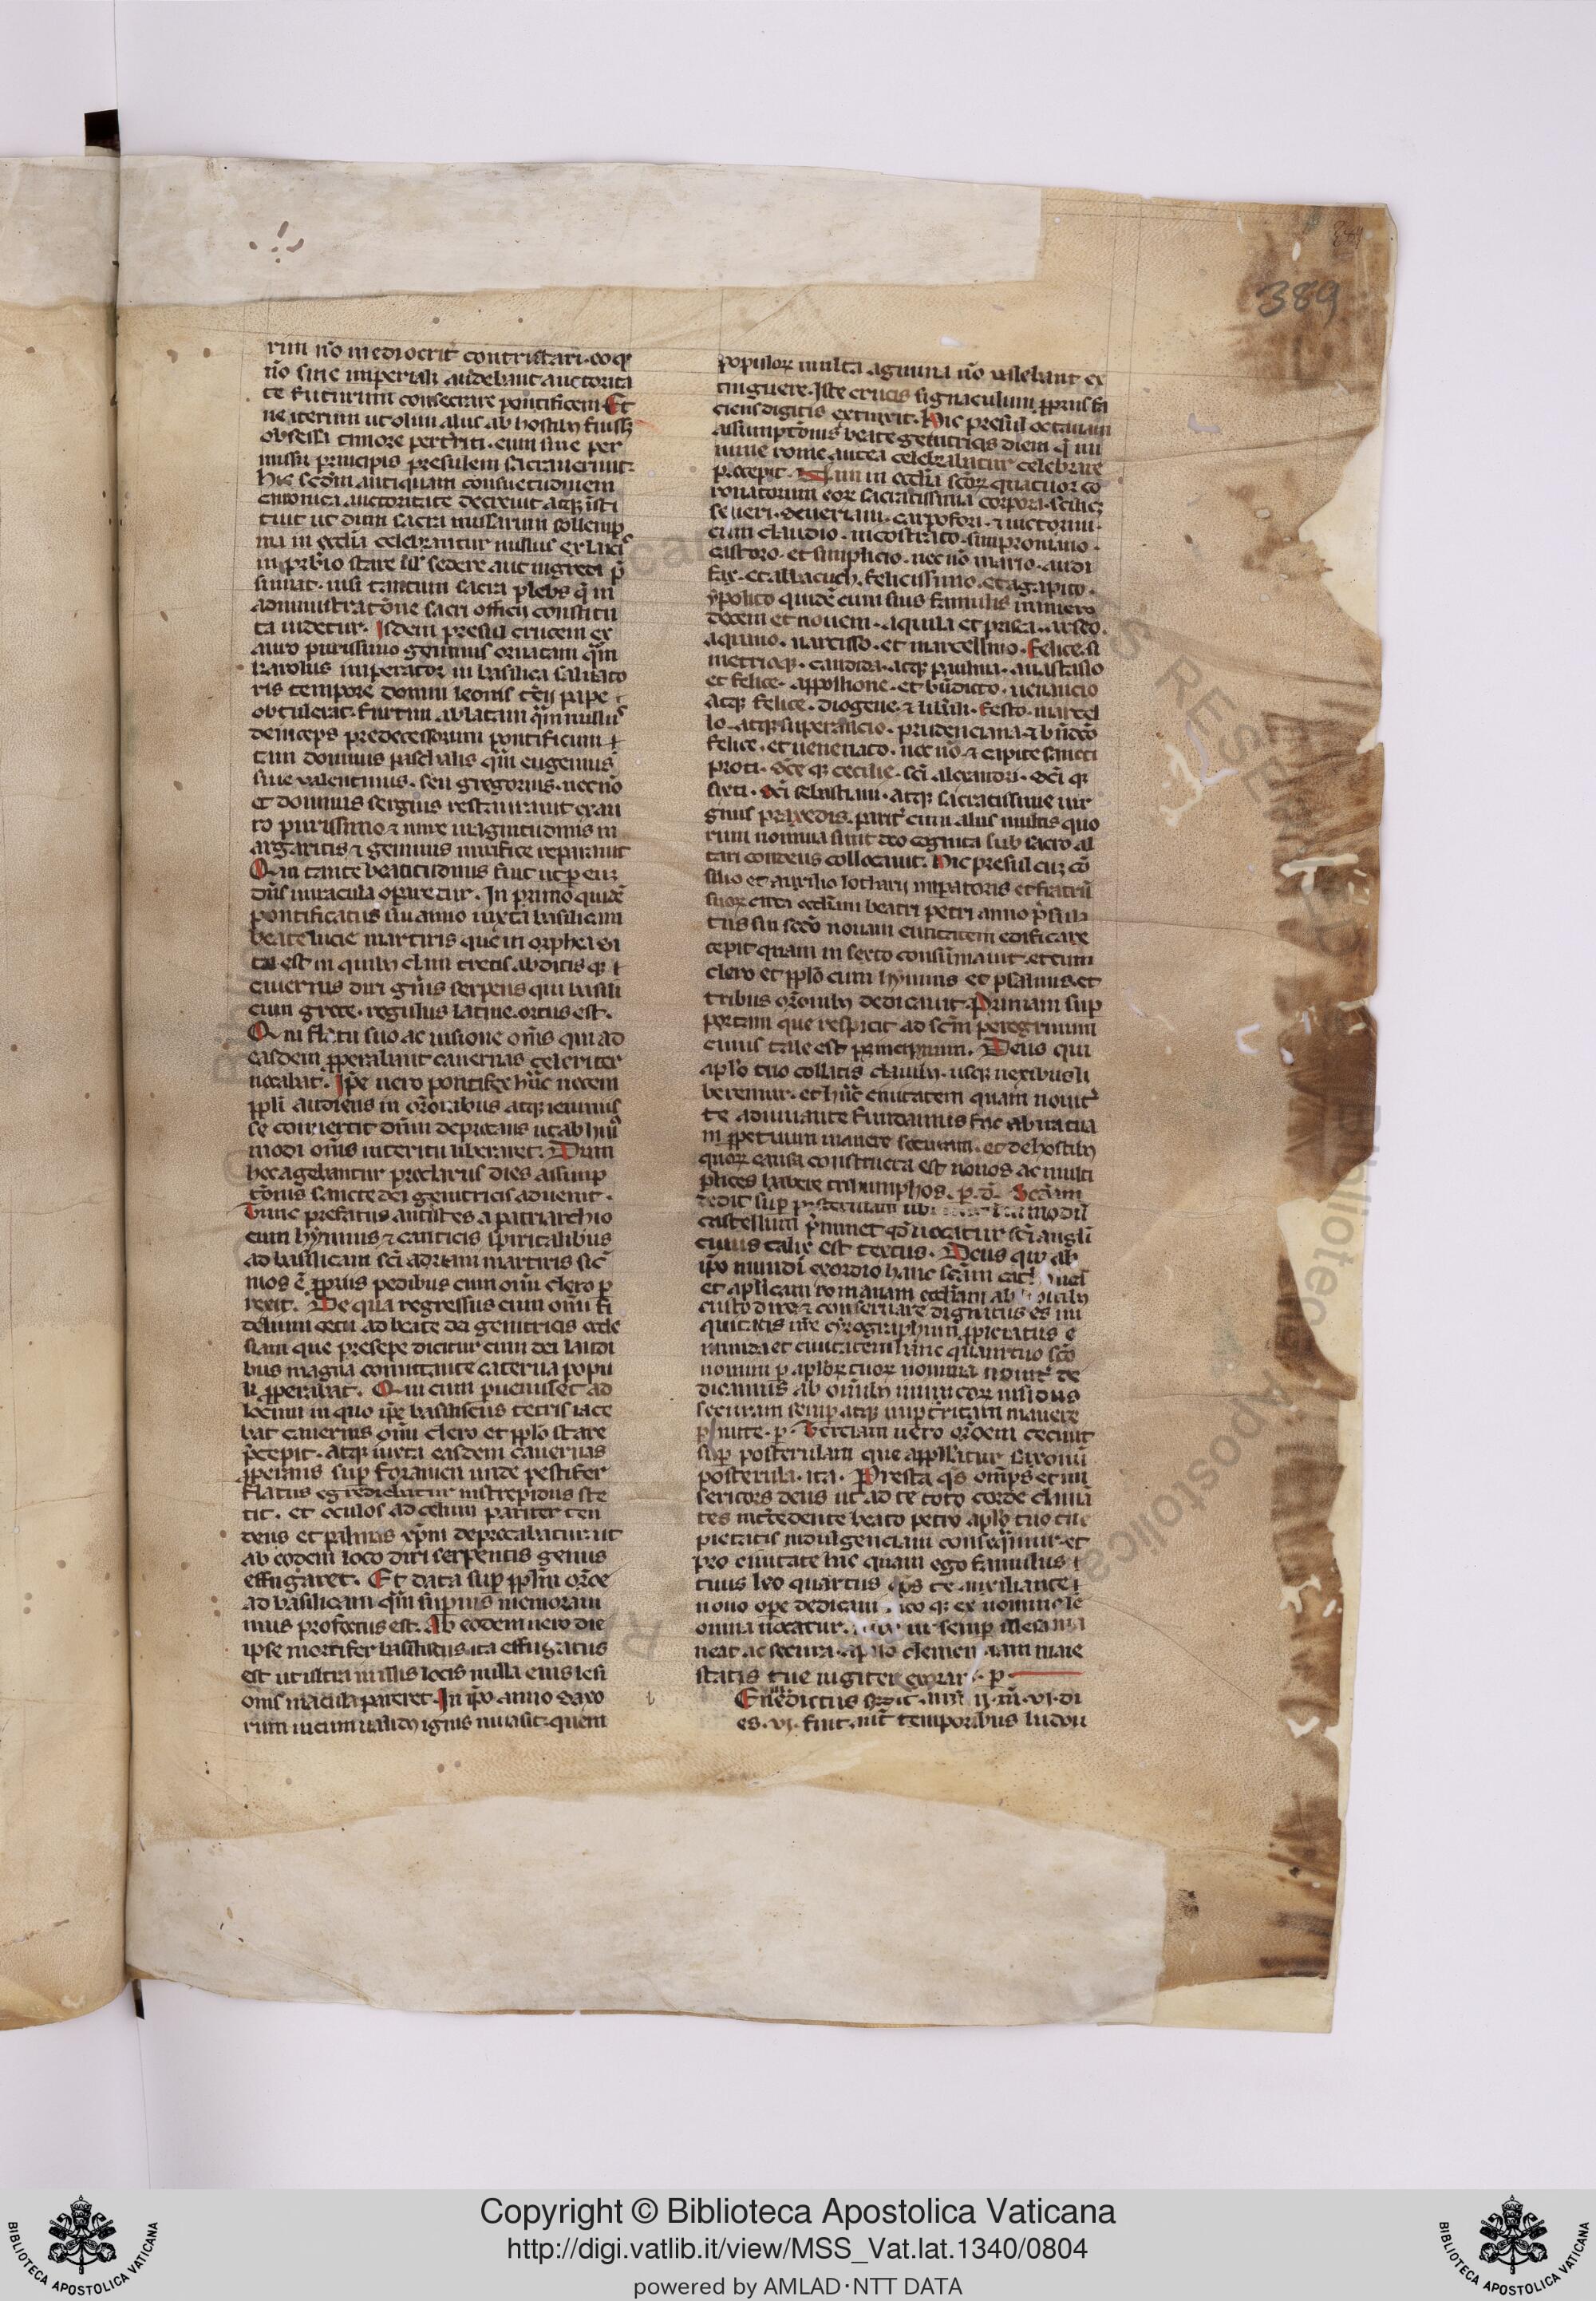 389
rim nõ mediocrit̾ contristari. eo qꝫ
nõ sine imperiali audebant auctorita
te futurum consecrare pontificem. Et
ne iterum ut olim aliis ab hostibꝫ fuissꝫ
obsessi timore perterriti. eum sine per
missu principis presulem sacraverunt.
hic scd̾m antiquam consuetudinem
canonica auctoritate decrevit atqꝫ ĩsti
tuit ut dum sacra missarum sollemp
nia in eccl̾ia celebrantur nullus ex laicis
in prb̾io stare ul̾ sedere aut ingredi p̃
sumat. nisi tantum sacra plebs q̃ in
administratõne sacri officij constitu
ta videtur. Isdem presul crucem ex
auro purissimo gemmis ornatam q̃m
karolus imperator in basilica salvato
ris tempore domni leonis t̾cij pape
obtulerat. furtim ablatam q̃m nullus
deinceps predecessorum pontificum
tam domnus paschalis q̃m eugenius
sive valentinus. seu gregorius. nec nõ
et domnus sergius restauravit ex au
ro purissimo ⁊ mire magnitudinis m
argaritis ⁊ gemmis mirifice reparavit
Qui tante beatitudinis fuit ut ꝑ eum
dñs miracula operaretur. In primo quidẽ
pontificatus sui anno iuxta basilicam
beate lucie martiris que in orphea si
ta est in quibꝫ clam tetris abditis qꝫ
cavernis diri gñis serpens qui basili
cum grece. regulus latine. ortus est.
Qui flatu suo ac visione om̃s qui ad
easdem ꝓperabant cavernas celeriter
necabat. Ip̃e vero pontifex hũc necem
ppl̾i audiens in or̃onibus atqꝫ ieiuniis
se convertit dñm deprecans ut ab hui9
modi om̃s interitu liberaret. Dum
hec agebantur preclarus dies assump
tõnis sancte dei genitricis advenit.
Tunc prefatus antistes a patriarchio
cum hymnis ⁊ canticis spiritalibus
ad basilicam sci̾ adriani martiris sic̾
mos ẽ ꝓpriis pedibus cum om̃i clero ꝑ
rexit. De qua regressus cum om̃i fi
delium cetu ad beate dei genitricis eccle
siam que presepe dicitur cum dei laudi
bus magna comitante caterva popu
li ꝓperabat. Qui cum ꝑvenisset ad
locum in quo ip̃e basiliscus tetris iace
bat cavernis om̃i clero et ppl̾o stare
p̃cepit. atqꝫ iuxta easdem cavernas
ꝓperans suꝑ foramen unde pestifer
flatus egrediebatur intrepidus ste
tit. et oculos ad celum pariter ten
dens et palmas xp̃m deprecabatur ut
ab eodem loco diri serpentis genus
effugaret. Et data suꝑ ppl̾m or̃oe
ad basilicam q̃m supius memoravi
mus profectus est. Ab eodem vero die
ipse mortifer basiliscus ita effugatus
est ut ultra in illis locis nulla eius lesi
onis macula pareret. In ip̃o anno saxo
rum vicum validꝫ ignis invasit. quem
populorꝫ multa agmina nõ valebant ex
tinguere. Iste crucis signaculum ꝓpriis fa
ciens digitis extinxit. Hic presul octavam
assumptõnis beate genitricis diem q̃ mi
nime rome antea celebrabatur celebrare
p̃cepit. Tum in eccl̾ia sc̃orꝫ quatuor co
ronatorum eorꝫ sacratissima corpora. scilicꝫ
severi. severiani. carpofori. ⁊ victorini.
cum claudio. nicostrato. simproniano.
castoro. et simplicio. nec nõ mario. audi
fax. et abbacuch. felicissimo. et agapito.
ypolito quidẽ cum suis famulis numero
decem et novem. aquila et prisca. arseo.
aquino. narcisso. et marcellino. felice. si
metrioqꝫ. candida. atqꝫ paulina. anastasio
et felice. appollione. et bñdicto. venancio
atqꝫ felice. diogene. ⁊ lib̾ali. festo. marcel
lo. atqꝫ superancio. prudenciana. ⁊ bñdc̃o
felice. et venenato. nec nõ. ⁊ capite sancti
proti. sc̃e qꝫ cecilie. sci̾ alexandri. sc̃i qꝫ
sixti. sc̃i sebastiani. atqꝫ sacratissime vir
ginis praxedis. parit̾ cum aliis multis quo
rum nomina sunt deo cognita sub sacro al
tari condens collocavit. Hic presul cuꝫ cõ
silio et auxilio lotharij imꝑatoris et fratrũ
suorꝫ circa eccl̾iam beatri petri anno p̃sula
tus sui sec̾o novam civitatem edificare
cepit quam in sexto consum̃avit. et cum
clero et ppl̾o cum hymnis et psalmis. et
tribus or̃onibꝫ dedicavit. Primam suꝑ
portam que respicit ad sc̃m peregrinum
cuius tale est principium. Deus qui
apl̾o tuo collatis clavibꝫ. usqꝫ nexibus li
beremur. et hũc civitatem quam novit̾
te adiuvante fundavimus fac ab ira tua
in ꝑpetuum manere securam. et de hostibꝫ
quorꝫ causa constructa est novos ac multi
plices habere triumphos. p. d̾. Secũam
dedit suꝑ posterulam ubi mi̾ modũ
castellum p̃minet qd̾ vocatur sci̾ angli̾
cuius talis est textus. Deus qui ab
ip̃o mundi exordio hanc sc̃am cath
et aplicam romanam eccl̾iam ab
custodire ⁊ conservare dignatus es ini
quitatis nr̃e cyrographum ꝓpiciatus e
munda et civitatem hãc quam tuo sc̃o
nomini ꝑ apl̾orꝫ tuorꝫ nomina novit̾ de
dicamus ab om̃ibꝫ inimicorꝫ insidiis
securam semꝑ atqꝫ imꝑt̾ritam manere
ꝑmitte. p. Terciam vero or̃oem cecinit
suꝑ posterulam que appellatur saxonũ
posterula. ita. Presta qs̃ om̃ps et mi
sericors deus ut ad te toto corde clamã
tes int̾cedente beato petro apl̾o tuo tue
pietatis indulgenciam conseqm̃ur. et
pro civitate hac quam ego famulus
tuus leo quartus ep̃s te auxiliante
novo oꝑe dedicavi qꝫ ex nomine le
onina vocatur. semꝑ illesa ma
neat ac secura. apud clemenciam maie
statis tue iugiter exorar. p.
Benedictus sedit. ann̾. ij. m̾. vi. di
es. vi. fuit. aut̾ temporibus ludovi